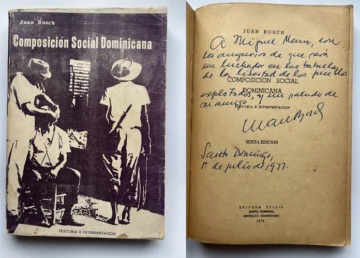 Juan Bosch
Composición Social Dominicana
HISTORIA E INTERPRETACION
JUAN BOSCH
A Miguel Mena, con
los augurios de que será
un luchador en las batallas
de la libertad de los pueblos
COMPOSICIÓN SOCIAL
DOMINICANA
explotados, y un saludo de
HISTORIA E INTERPRETACION
su amigo.
Juan Bosch
SEXTA EDICION
Santo Domingo,
1º de julio de 1977.
EDITORA
SANTO DOMINGO,
REPUBLICA DOMINICANA